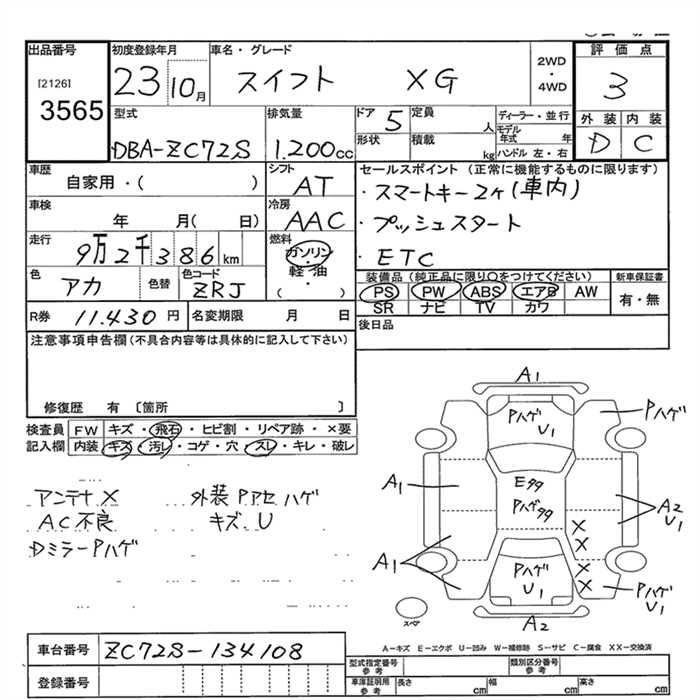 出品番号
[2126]
3565
初度登録年月
23 10月
車名・グレード
スイフト XG
2WD
・
4WD
評価点
3
外装 内装
D C
型式
DBA-ZC72S
排気量
1.200cc
ドア 5
形状
定員 人
積載 kg
ディーラー・並行
モデル年式 年
ハンドル 左・右
車歴
自家用・( )
シフト
AT
車検
年 月( 日)
冷房
AAC
走行
9万2千386km
燃料
ガソリン
・
軽・油
・
( )
色
アカ
色替
色コード
ZRJ
R券 11.430 円
名変期限 月 日
セールスポイント (正常に機能するものに限ります)
・スマートキー2ヶ(車内)
・プッシュスタート
・ETC
装備品(純正品に限り○をつけてください)
PS PW ABS エアB AW
SR ナビ TV カワ
新車保証書
有・無
後日品
注意事項申告欄(不具合内容等は具体的に記入して下さい)
修復歴 有 〔箇所 〕
検査員
記入欄
FW キズ・飛石・ヒビ割・リペア跡・×要
内装 キズ・汚レ・コゲ・穴・スレ・キレ・破レ
アンテナ X
AC不良
Dミラー Pハゲ
外装 Pアセ ハゲ
キズ U
A1
Pハゲ
U1
Pハゲ
A1
E99
Pハゲ99
A2
U1
X
X
A1
Pハゲ
U1
X
X
Pハゲ
U1
スペア
A2
A-キズ E-エクボ U-凹み W-補修跡 S-サビ C-腐食 XX-交換済
車台番号 ZC72S-134108
登録番号
型式指定番号
参考
類別区分番号
参考
車庫証明用
参考
長さ cm 幅 cm 高さ cm